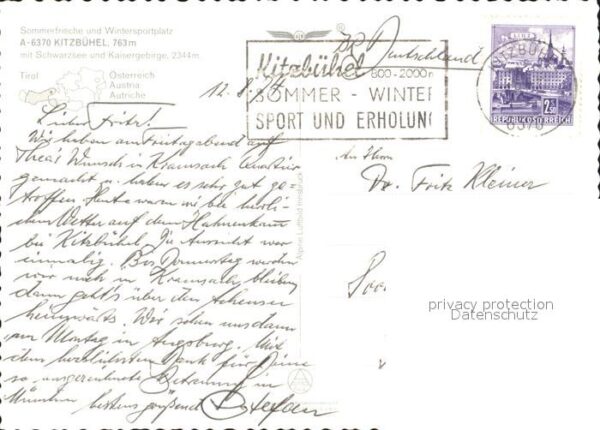 Sommerfrische und Wintersportplatz
A-6370 KITZBÜHEL, 763m
mit Schwarzsee und Kaisergebirge, 2344m
Tirol
Österreich
Austria
Autriche
12.8.
Lieber Fritz!
Wir haben am Freitagabend auf
Thea's Wunsch in Kramsach Quartier
gemacht u. haben es sehr gut ge-
troffen. Heute waren wir bei herrli-
chem Wetter auf dem Hahnenkamm
bei Kitzbühel. Die Aussicht war
einmalig. Bis Donnerstag werden
wir noch in Kramsach bleiben
dann geht's über den Achensee
heimwärts. Wir sehen uns dann
am Montag in Augsburg. Mit
dem herzlichsten Dank für Deine
so ausgezeichnete Betreuung in
München bestens grüßend Stefan
Alpine Luftbild Innsbruck
BR Deutschland
Kitzbühel
800-2000m
SOMMER - WINTER
SPORT UND ERHOLUNG
LINZ
2.50
REPUBLIK ÖSTERREICH
KITZBÜHEL
6370
An Herrn
Dr. Fritz Kleiner
privacy protection
Datenschutz